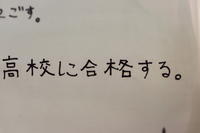 ごす。
高校に合格する。